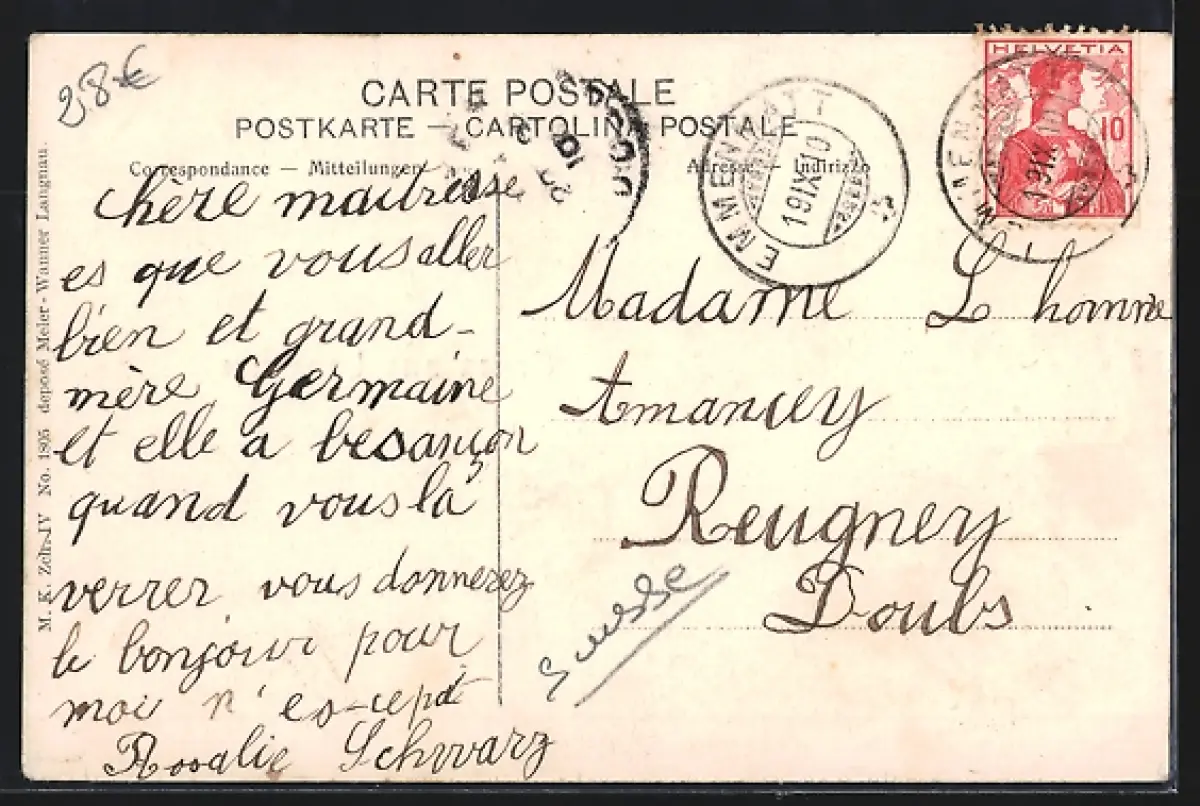 2,8 €
CARTE POSTALE
POSTKARTE — CARTOLINA POSTALE
Correspondance — Mitteilungen
Adresse — Indirizzo
HELVETIA
10
EMMENMATT
19 IX 10
19 IX 10
M. K. Zell. IV No. 1805 deposé Meier-Wanner Langnau.
Chère maitresse
es que vous aller
bien et grand-
mère Germaine
et elle a besançon
quand vous la
verrer vous donnerez
le bonjour pour
moi n'es-cepat
Rosalie Schwarz
Madame L homme
Amancey
Reugney
Doubs
Suisse